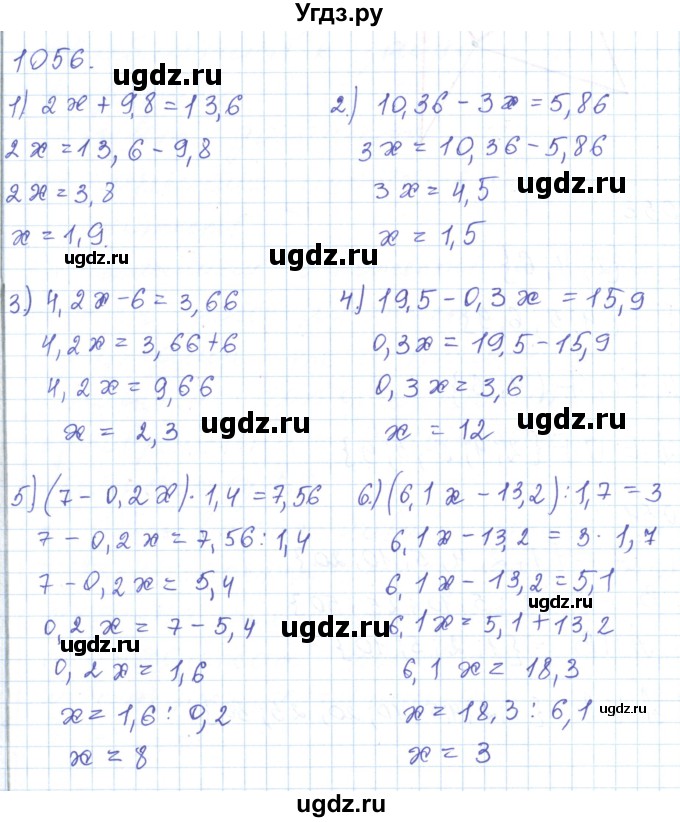 Угдз.ру
1056.
ugdz.ru
ugdz.ru
1) 2x + 9,8 = 13,6
2x = 13,6 - 9,8
2x = 3,8
x = 1,9.
ugdz.ru
2.) 10,36 - 3x = 5,86
3x = 10,36 - 5,86
3x = 4,5
ugdz.ru
x = 1,5
ugdz.ru
3.) 4,2x - 6 = 3,66
4,2x = 3,66 + 6
4,2x = 9,66
x = 2,3
ugdz.ru
4) 19,5 - 0,3x = 15,9
0,3x = 19,5 - 15,9
0,3x = 3,6
x = 12
ugdz.ru
5) (7 - 0,2x) · 1,4 = 7,56
7 - 0,2x = 7,56 : 1,4
7 - 0,2x = 5,4
0,2x = 7 - 5,4
ugdz.ru
0,2x = 1,6
x = 1,6 : 0,2
x = 8
6.) (6,1x - 13,2) : 1,7 = 3
6,1x - 13,2 = 3 · 1,7
6,1x - 13,2 = 5,1
ugdz.ru
ugdz.ru
6,1x = 5,1 + 13,2
6,1x = 18,3
x = 18,3 : 6,1
ugdz.ru
x = 3
ugdz.ru